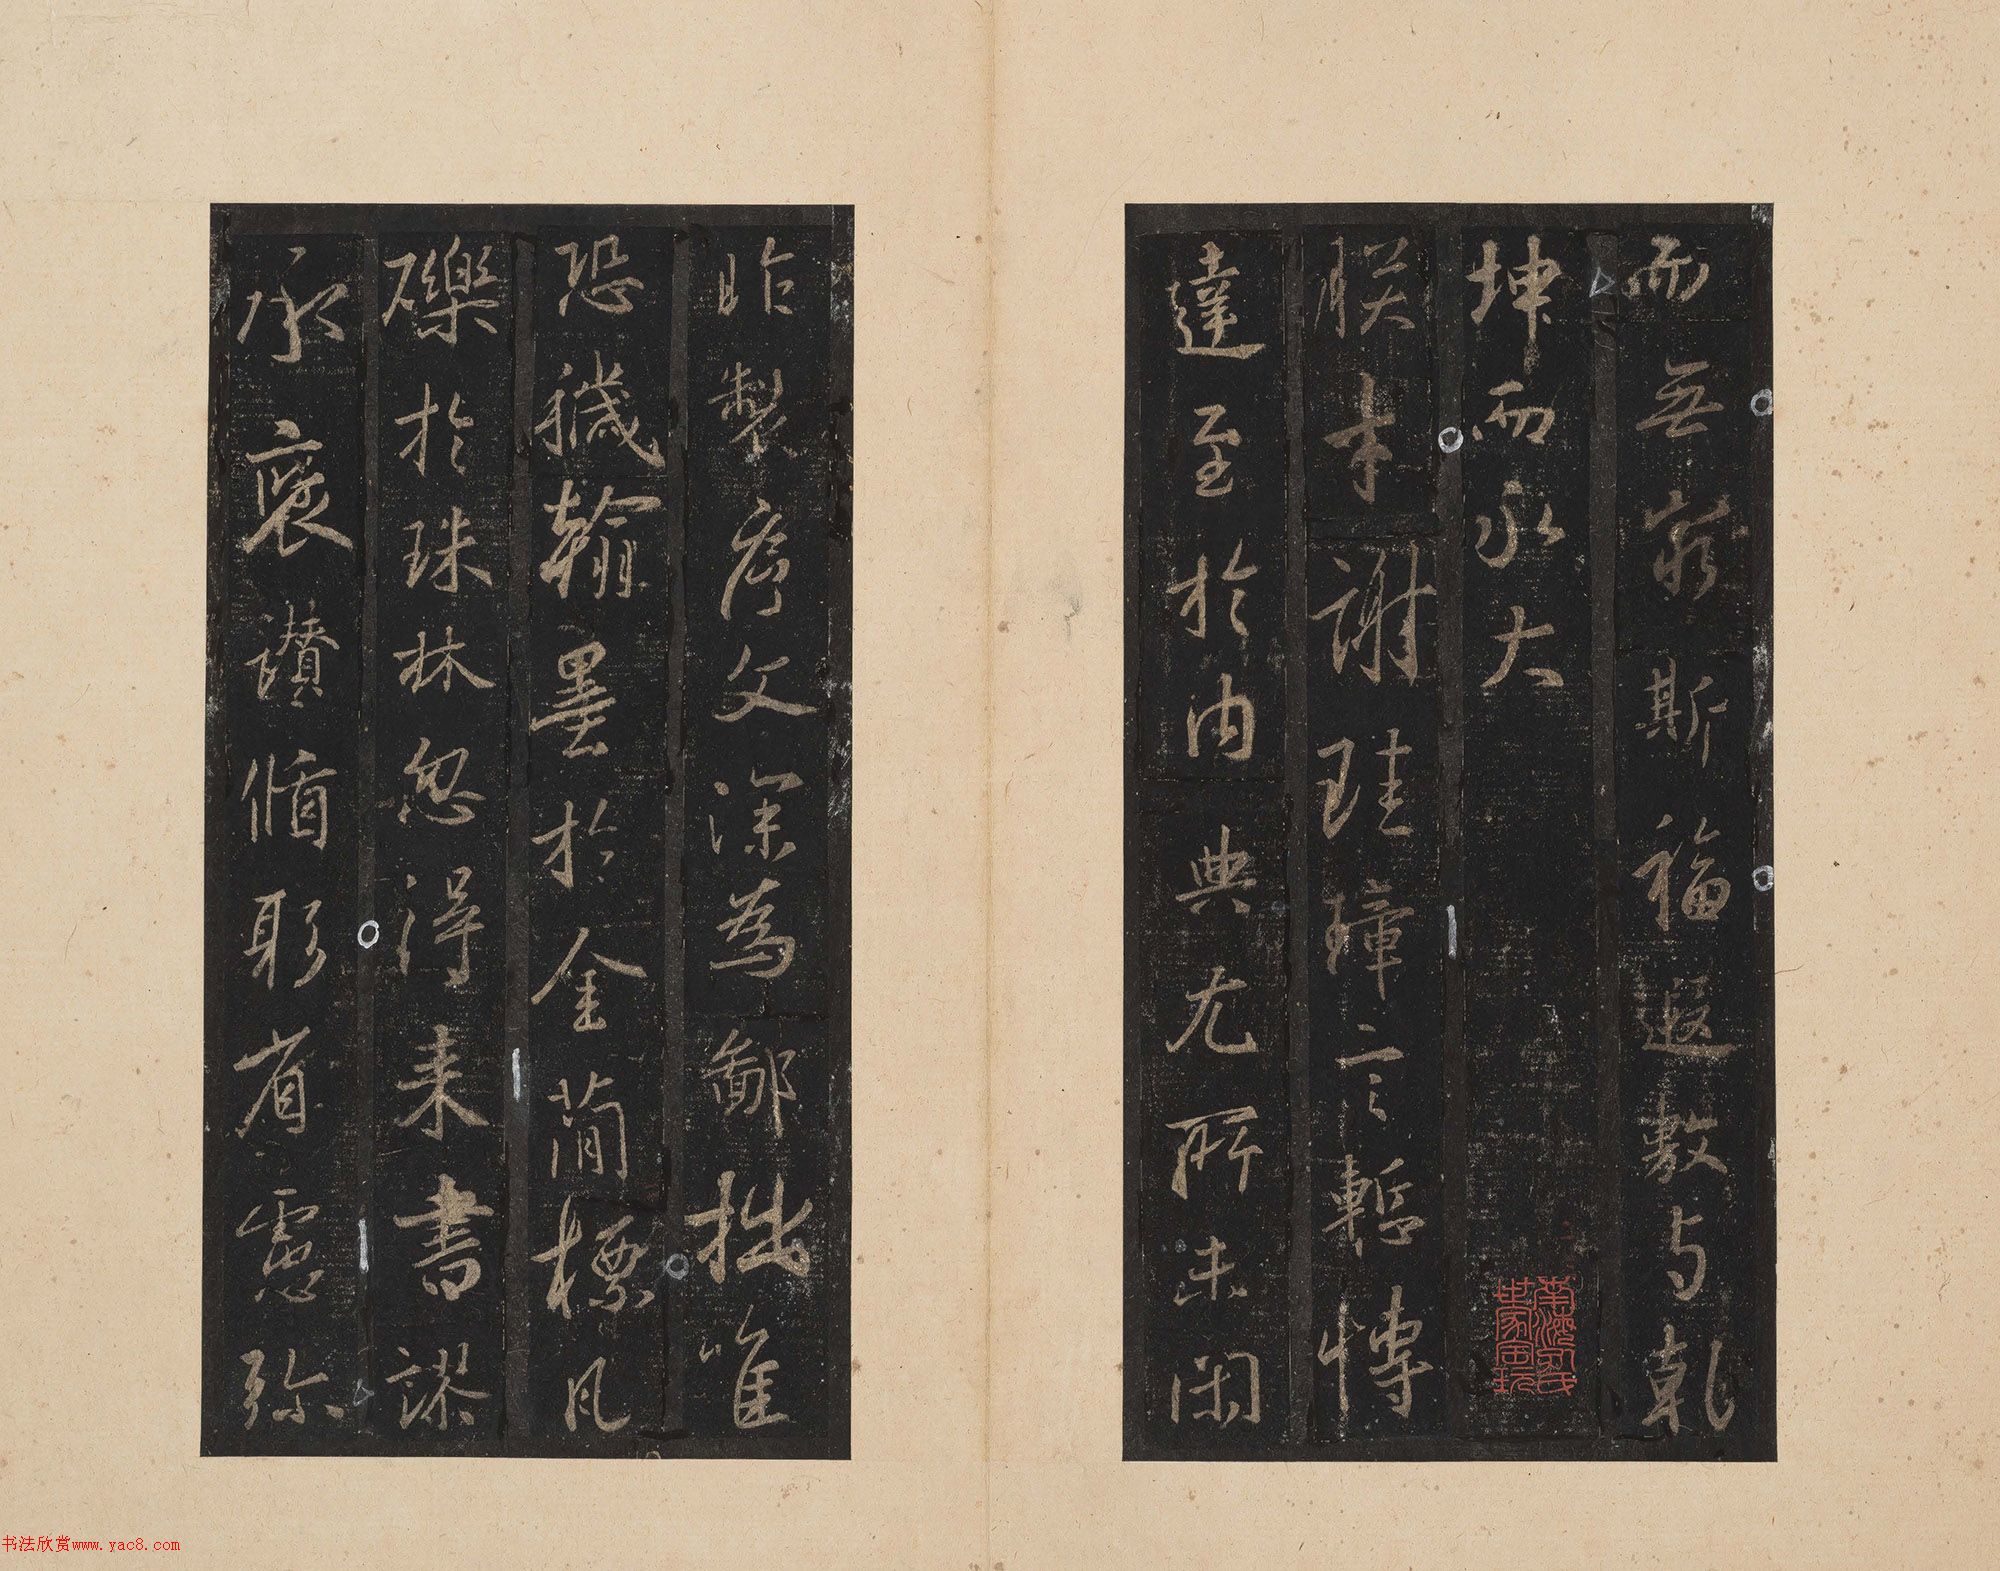 而無窮斯福遐敷与乹
坤而永大
朕才謝珪璋言慙博
達至於内典尤所未閑
昨製序文深為鄙拙唯
恐穢翰墨於金簡標凡
礫於珠林忽得来書謬
承襃讃循躬省慮弥
书法欣赏www.yac8.com